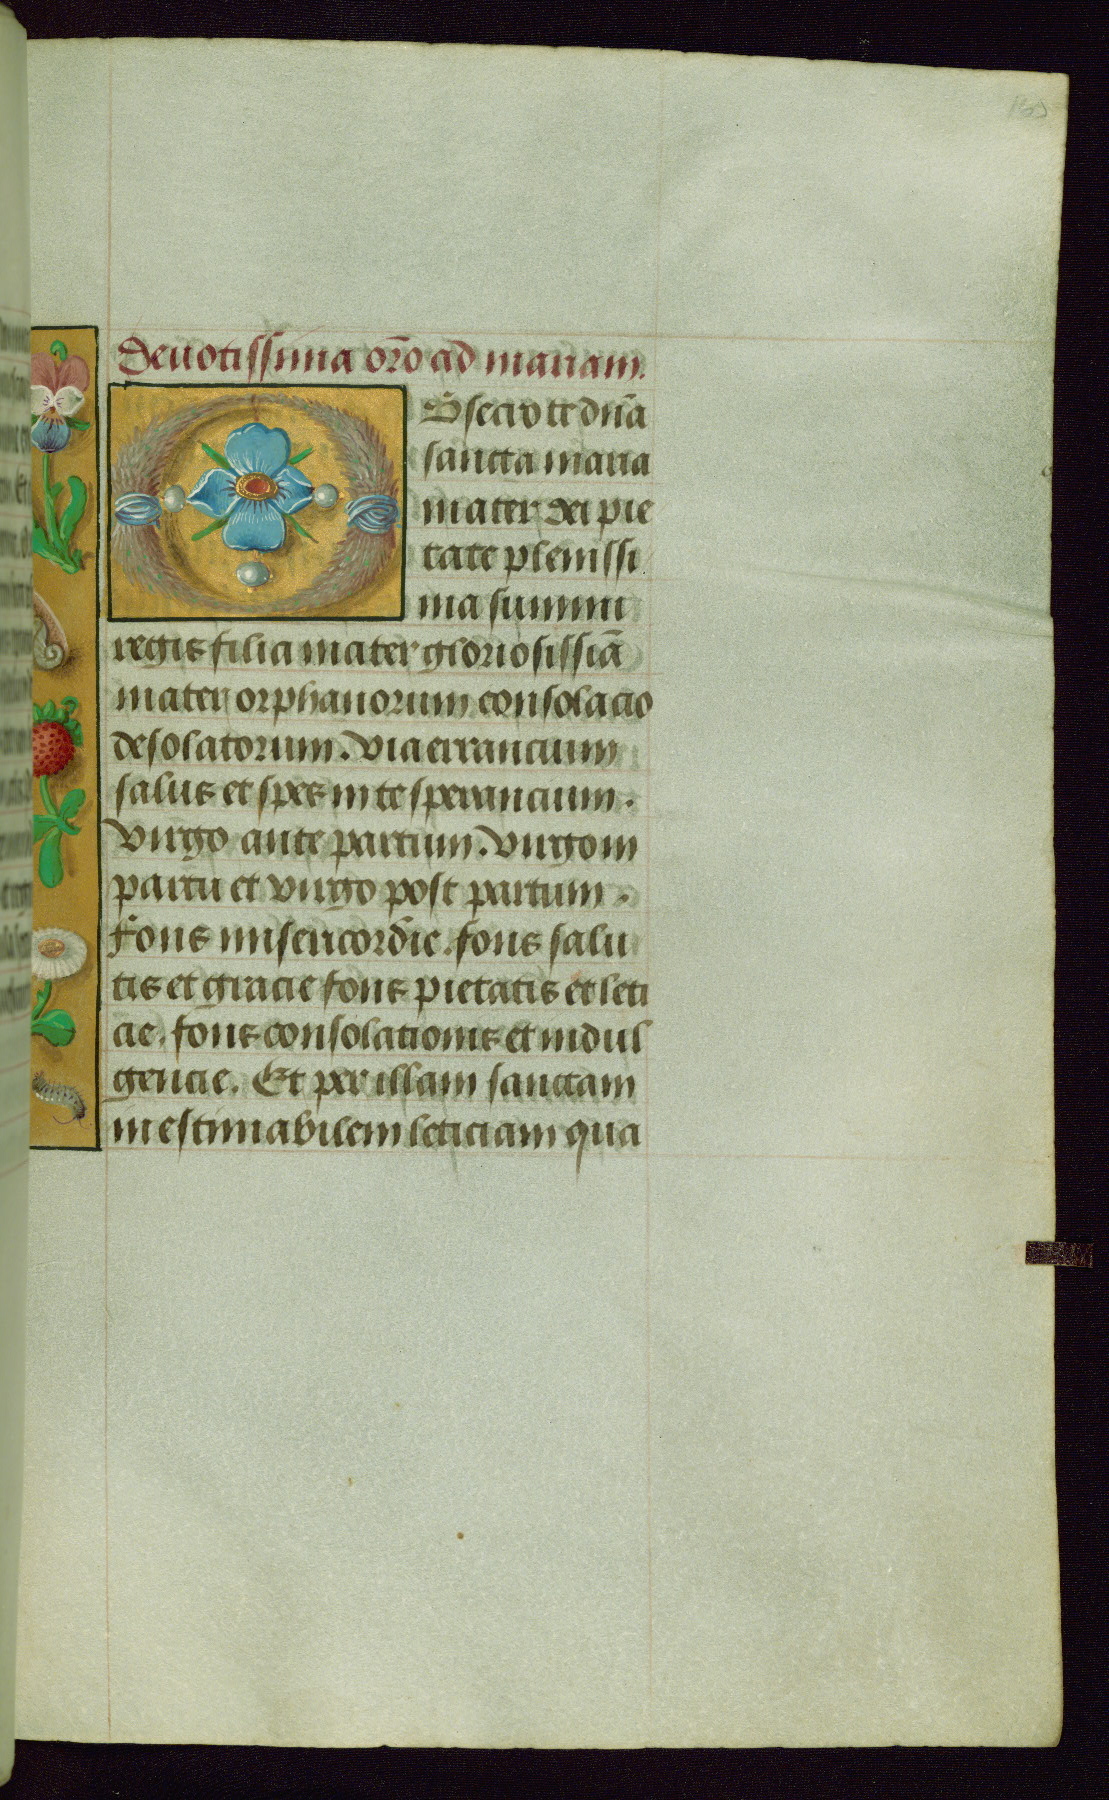 Deuotissima or̄o ad mariam.
OBsecro te dn̄a
sancta maria
mater dei pie
tate plenissi
ma summi
regis filia mater gloriosissiā
mater orphanorum consolacio
desolatorum. via errancium
salus et spes in te sperancium.
virgo ante partum. virgo in
partu et virgo post partum.
fons misericordīe. fons salu
tis et gracie fons pietatis et leti
cie. fons consolationis et indul
gencie. Et per illam sanctam
inestimabilem leticiam qua